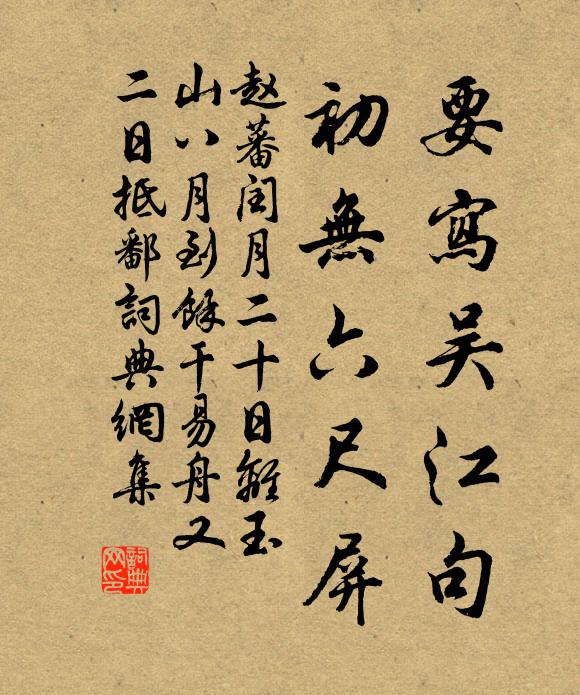 要寫吴江句
初無六尺屏
赵蕃闰月二十日離玉
山八月到餘干易舟又
二日抵鄱詞典網集
詞典网印